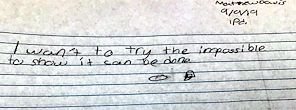 Matthew Davis
9/9/19
1Pd.
I want to try the impossible
to show it can be done